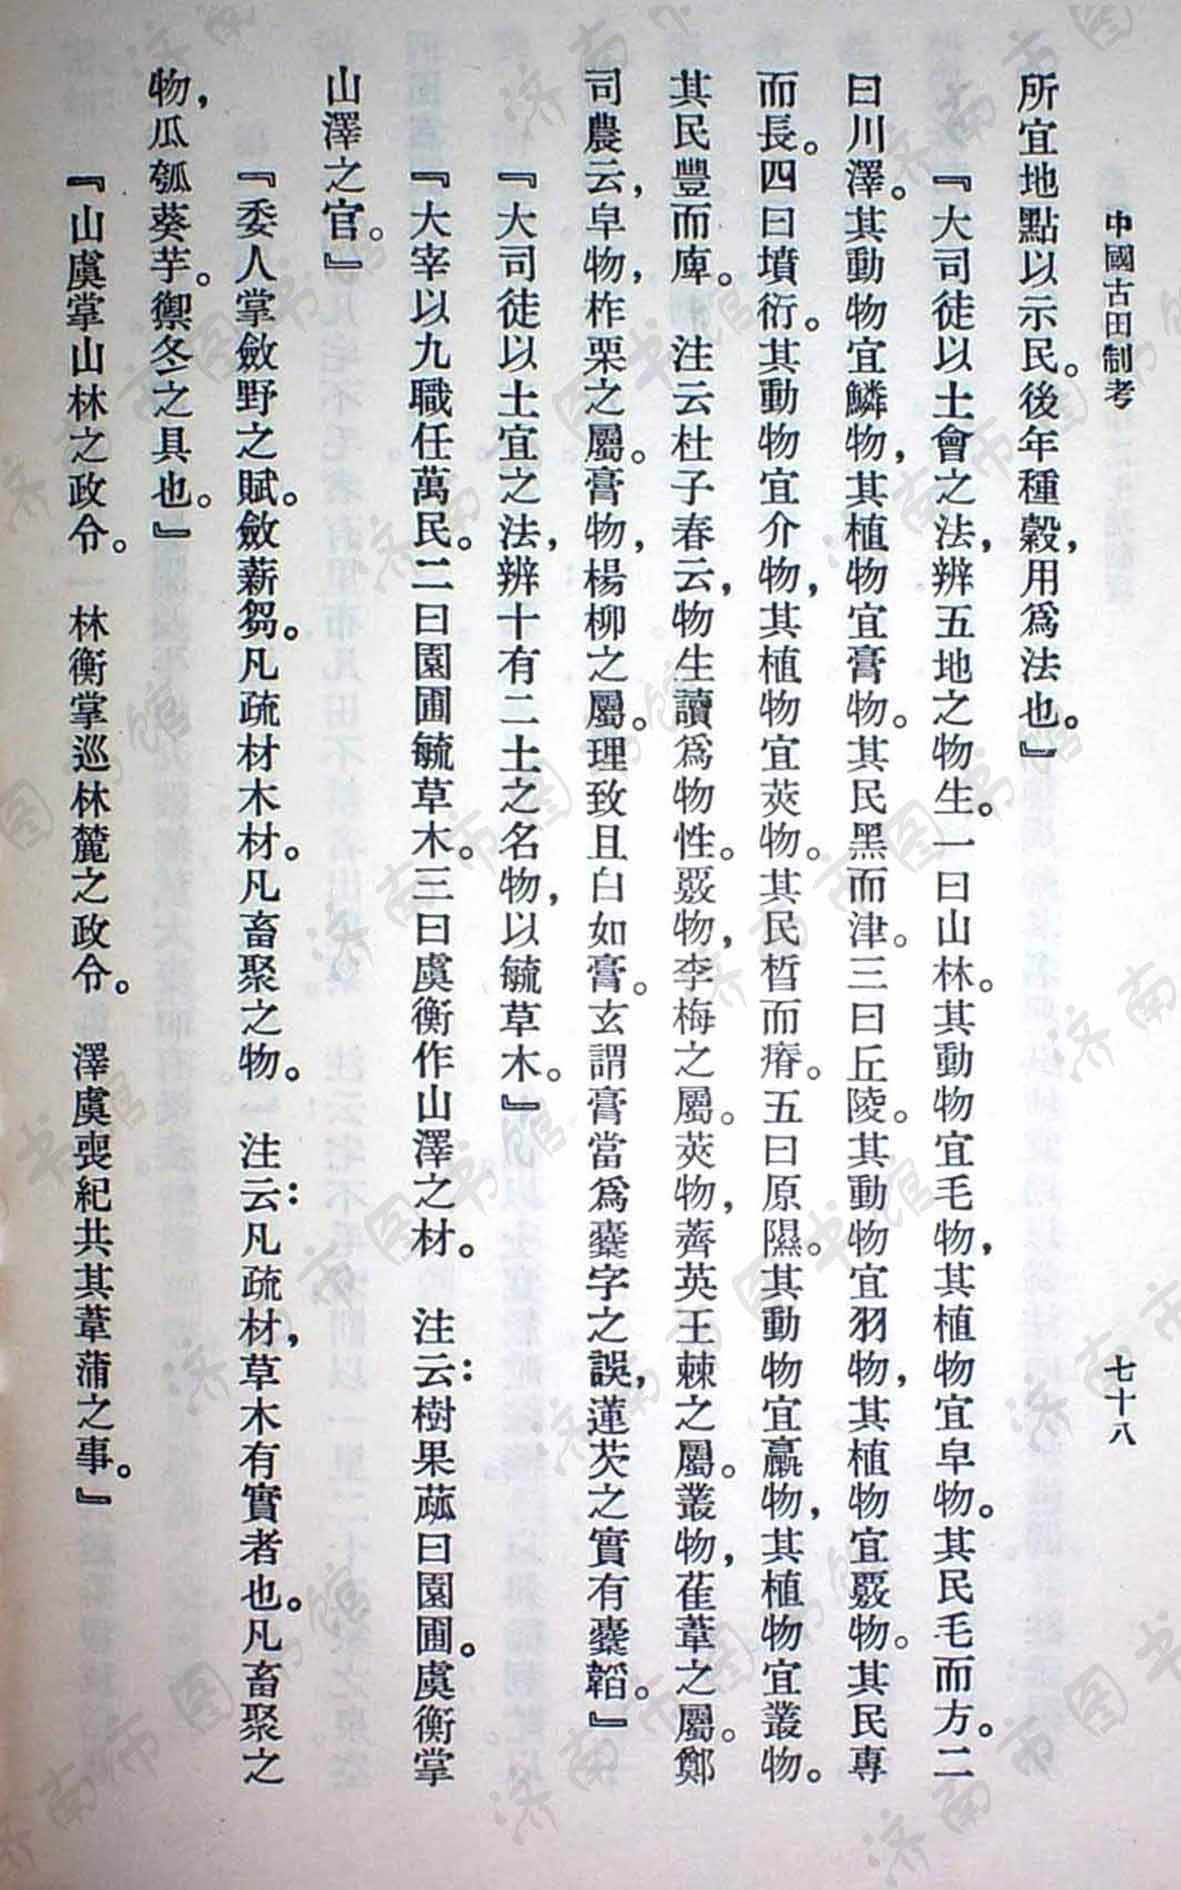 中國古田制考
七十八
所宜地點以示民。後年種穀，用爲法也。』
『大司徒以土會之法，辨五地之物生。一曰山林。其動物宜毛物，其植物宜皁物。其民毛而方。二
曰川澤。其動物宜鱗物，其植物宜膏物。其民黑而津。三曰丘陵。其動物宜羽物，其植物宜覈物。其民專
而長。四曰墳衍。其動物宜介物，其植物宜莢物。其民晳而瘠。五曰原隰。其動物宜臝物，其植物宜叢物。
其民豐而庳。　注云杜子春云，物生讀爲物性。覈物，李梅之屬。莢物，薺英王棘之屬。叢物，萑葦之屬。鄭
司農云，皁物，柞栗之屬。膏物，楊柳之屬。理致且白如膏。玄謂膏當爲櫜字之誤，蓮芡之實有櫜韜。』
『大司徒以土宜之法，辨十有二土之名物，以毓草木。』
『大宰以九職任萬民。二曰園圃毓草木。三曰虞衡作山澤之材。　注云：樹果蓏曰園圃。虞衡掌
山澤之官。』
『委人掌斂野之賦。斂薪芻。凡疏材木材。凡畜聚之物。　注云：凡疏材，草木有實者也。凡畜聚之
物，瓜瓠葵芋。禦冬之具也。』
『山虞掌山林之政令。　林衡掌巡林麓之政令。　澤虞喪紀共其葦蒲之事。』
济南市图书馆